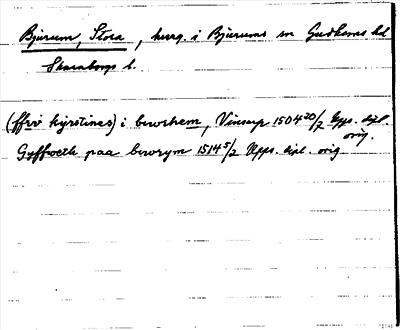 Bjurum, Stora, herrg. i Bjurums sn Gudhems hd
Skaraborgs l.
(ffrv kyrstines) i bwrhem, Vinsarp 1504 20/7 Upps. dipl. orig.
Gyffweth paa bwrym 1514 5/2 Upps. dipl. orig